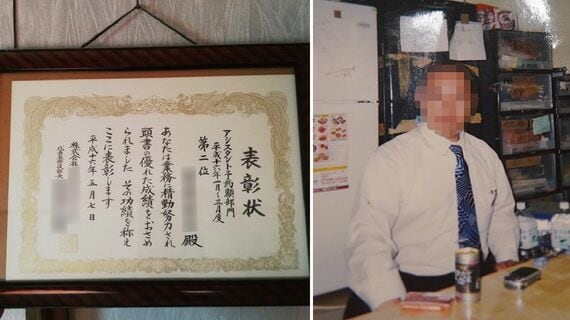 表彰状
アシスタント予約額部門
平成十六年一月～三月度
第二位
殿
あなたは業務に精勤努力され
頭書の優れた成績をおさめ
られました その功績を称え
ここに表彰します
平成十六年五月七日
株式会社